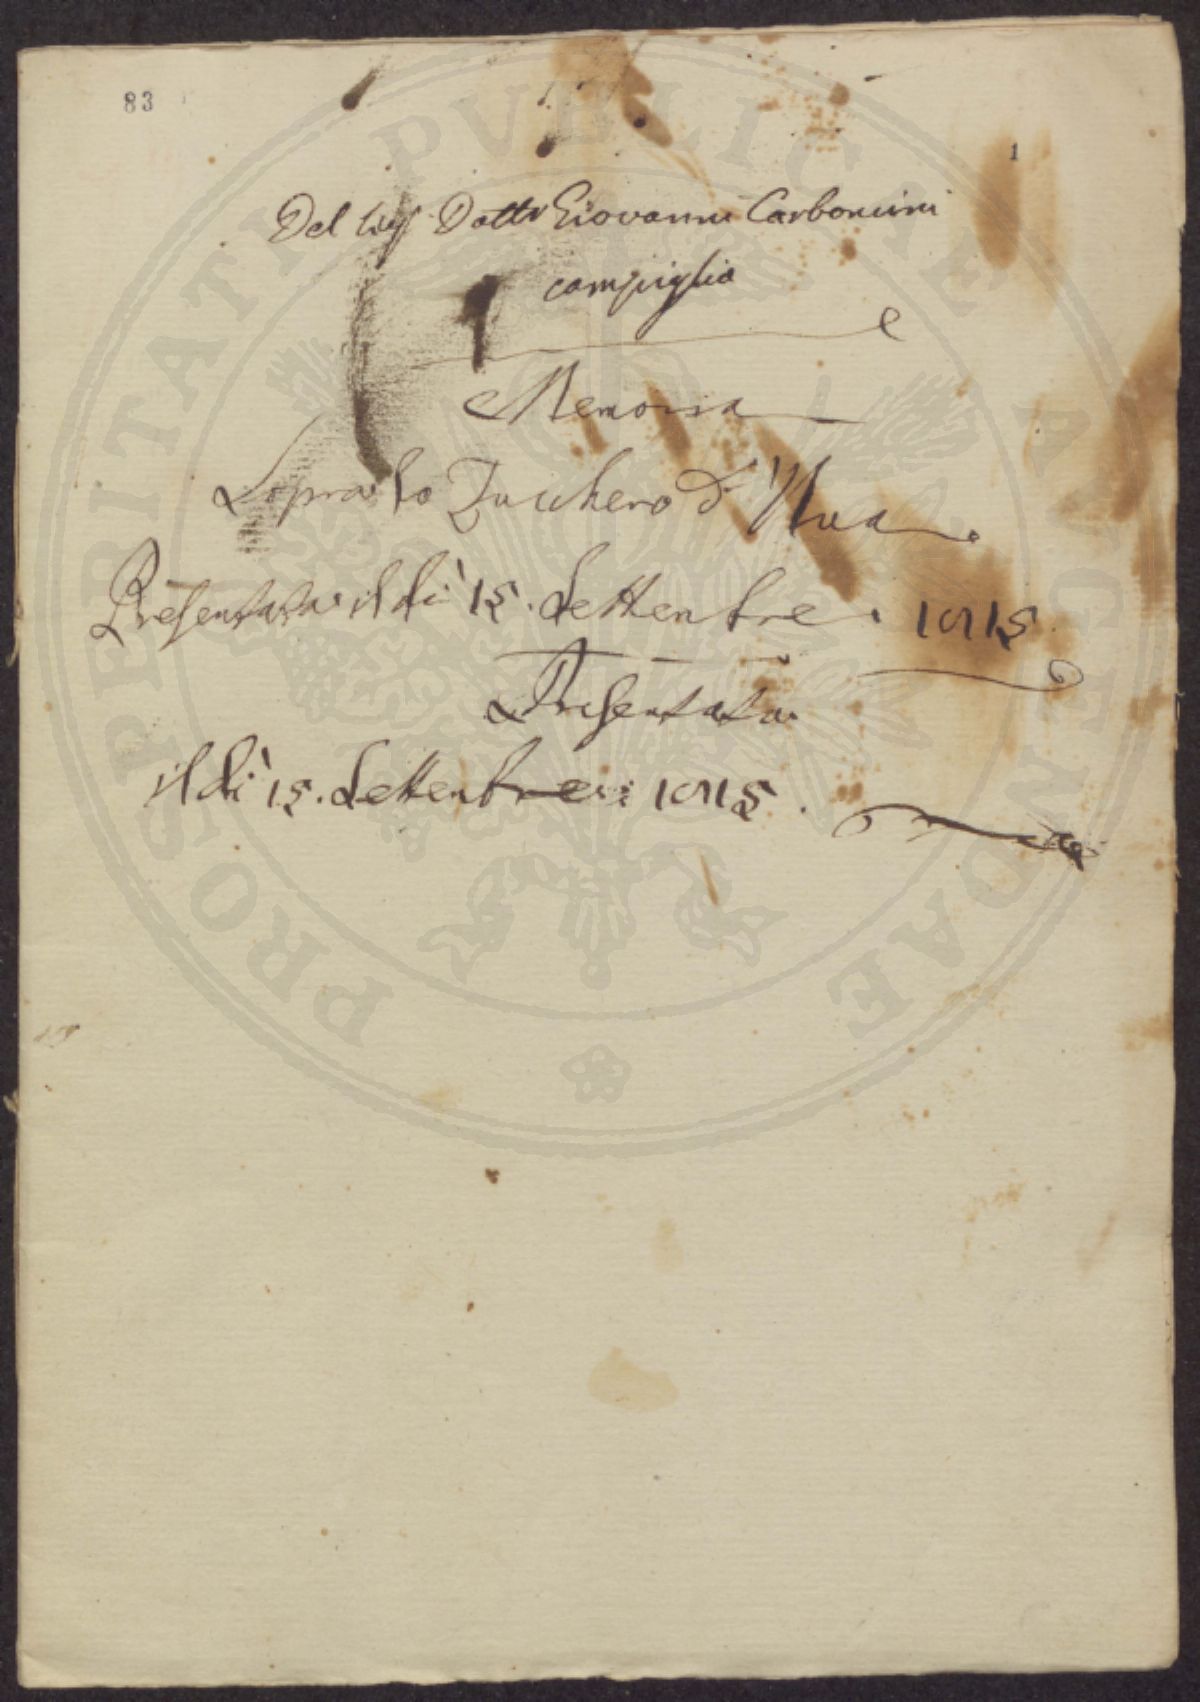 83
1
Del Sig.r Dottr Giovanni Carboncini
campiglia
Memoria
Sopra lo Zucchero d'Uva
Presentata il dì 15. Settenbre. 1815
Presentata
il dì 15. Settenbre: 1815.
PROSPERITATI PVBLICAE AVGENDAE